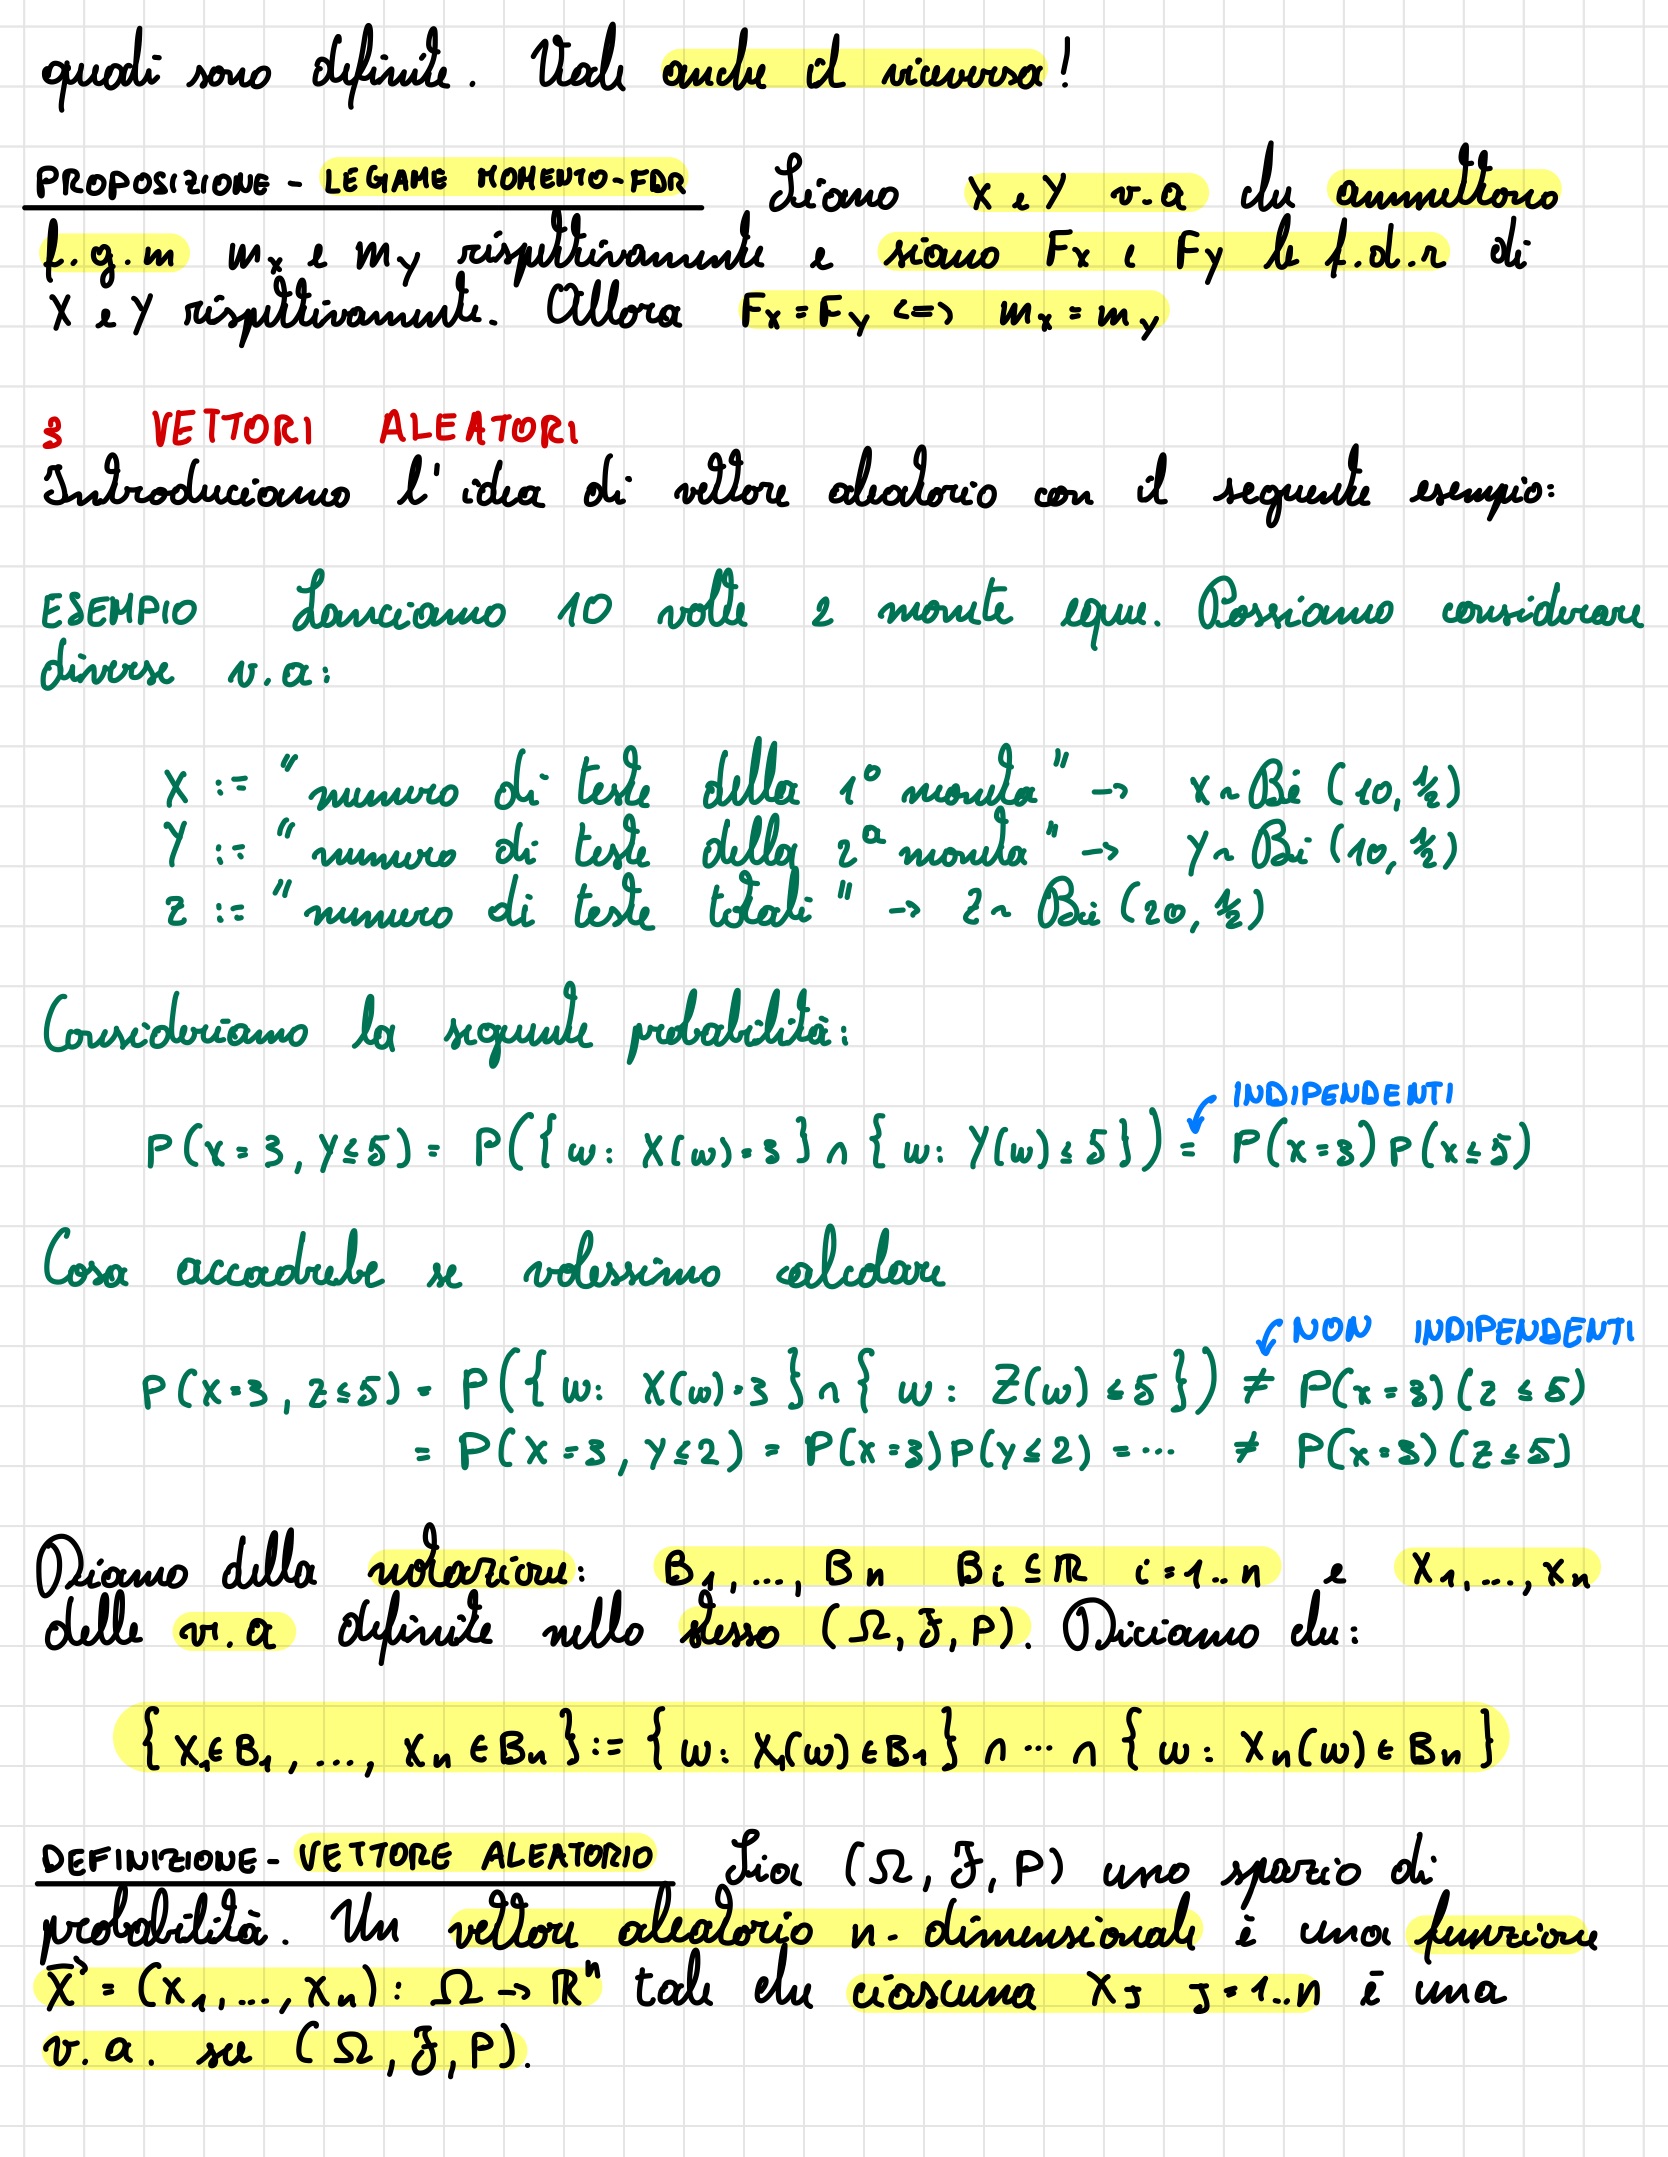 quali sono definite. Vale anche il viceversa!
PROPOSIZIONE - LEGAME MOMENTO-FDR Siano X e Y v.a che ammettono
f.g.m mₓ e m_Y rispettivamente e siano Fₓ e F_Y le f.d.r di
X e Y rispettivamente. Allora Fₓ = F_Y <=> mₓ = m_Y
3 VETTORI ALEATORI
Introduciamo l'idea di vettore aleatorio con il seguente esempio:
ESEMPIO Lanciamo 10 volte 2 monete eque. Possiamo considerare
diverse v.a:
X := "numero di teste della 1° moneta" -> X ~ Bi (10, ½)
Y := "numero di teste della 2ª moneta" -> Y ~ Bi (10, ½)
Z := "numero di teste totali" -> Z ~ Bi (20, ½)
Consideriamo la seguente probabilità:
INDIPENDENTI
P(X=3, Y≤5) = P({w: X(w)=3} ∩ {w: Y(w)≤5}) = P(x=3)P(x≤5)
Cosa accadrebbe se volessimo calcolare
NON INDIPENDENTI
P(X=3, Z≤5) = P({w: X(w)=3} ∩ {w: Z(w)≤5}) ≠ P(x=3)(Z≤5)
= P(X=3, Y≤2) = P(x=3)P(Y≤2) = ... ≠ P(x=3)(Z≤5)
Diamo della notazione: B₁, ..., Bn Bi ⊆ ℝ i=1..n e X₁, ..., Xn
delle v.a definite nello stesso (Ω, F, P). Diciamo che:
{X₁∈B₁, ..., Xn∈Bn} := {w: X₁(w)∈B₁} ∩ ... ∩ {w: Xn(w)∈Bn}
DEFINIZIONE - VETTORE ALEATORIO Sia (Ω, F, P) uno spazio di
probabilità. Un vettore aleatorio n-dimensionale è una funzione
X⃗ = (X₁, ..., Xn): Ω -> ℝⁿ tale che ciascuna XJ J=1..n è una
v.a. su (Ω, F, P).